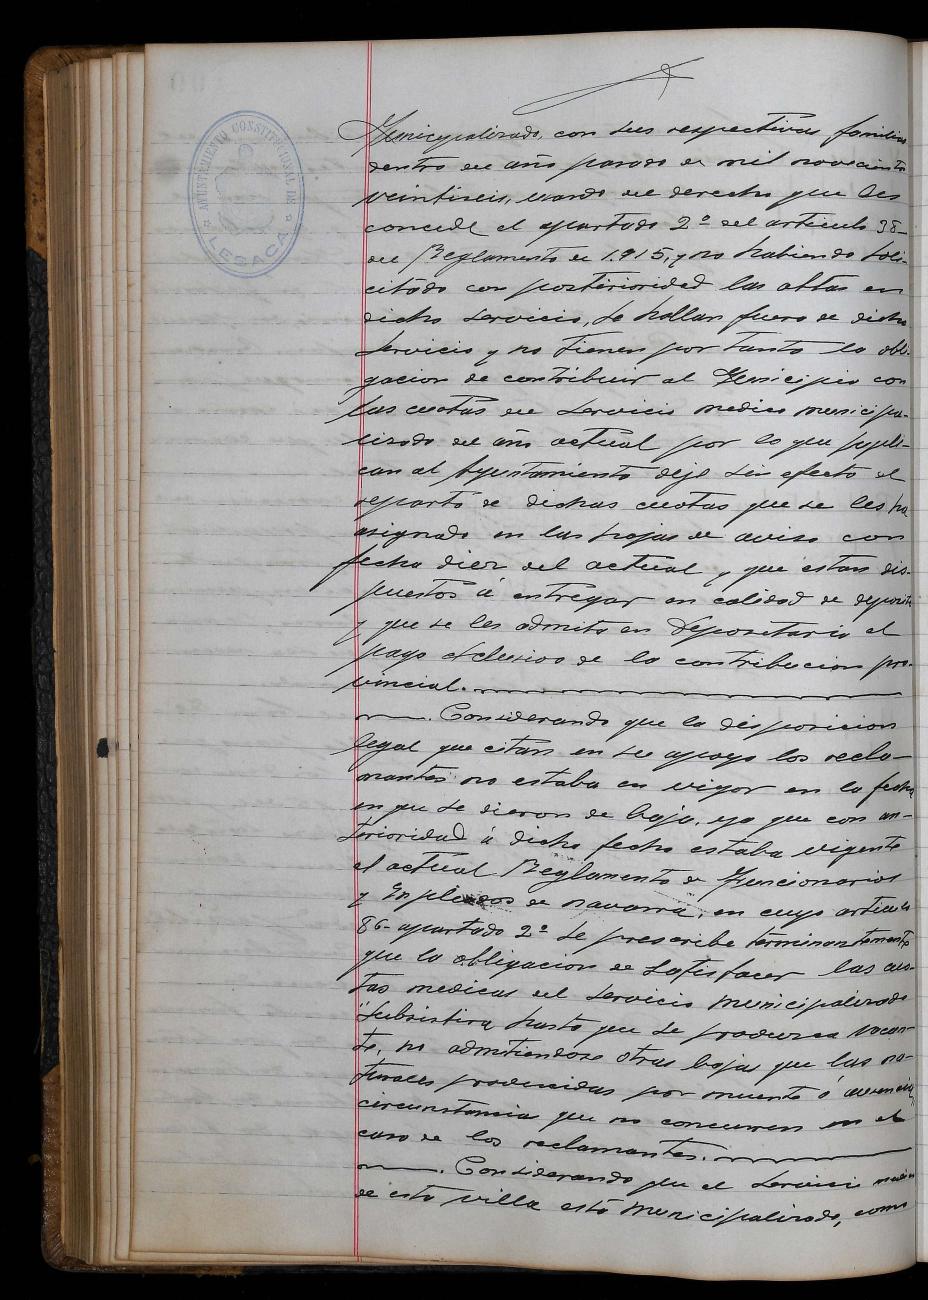 AYUNTAMIENTO CONSTITUCIONAL DE
LESACA
Municipalizado, con sus respectivas familias
dentro del año pasado de mil novecientos
veintiseis, usando del derecho que les
concede el apartado 2º del artículo 38-
del Reglamento de 1.915, y no habiendo soli-
citado con posterioridad las altas en
dicho servicio, se hallan fuera de dicho
servicio y no tienen por tanto la obli-
gacion de contribuir al Municipio con
las cuotas del servicio medico municipa-
lizado del año actual por lo que supli-
can al Ayuntamiento deje sin efecto el
reparto de dichas cuotas que se les ha
asignado en las hojas de aviso con
fecha diez del actual y que estan dis-
puestos á entregar en calidad de deposito
y que se les admita en Depositaria el
pago exclusivo de la contribucion pro-
vincial.
Considerando que la disposicion
legal que citan en su apoyo los recla-
mantes no estaba en vigor en la fecha
en que se dieron de baja, ya que con an-
terioridad á dicha fecha estaba vigente
el actual Reglamento de Funcionarios
y Empleados de Navarra, en cuyo articulo
86- apartado 2º se prescribe terminantemente
que la obligacion de satisfacer las cuo-
tas medicas del servicio municipalizado
subsistirá hasta que se produzca vacan-
te, no admitiendose otras bajas que las na-
turales producidas por muerte ó ausencia,
circunstancia que no concurren en el
caso de los reclamantes.
Considerando que el servicio medico
de esta villa está municipalizado, como